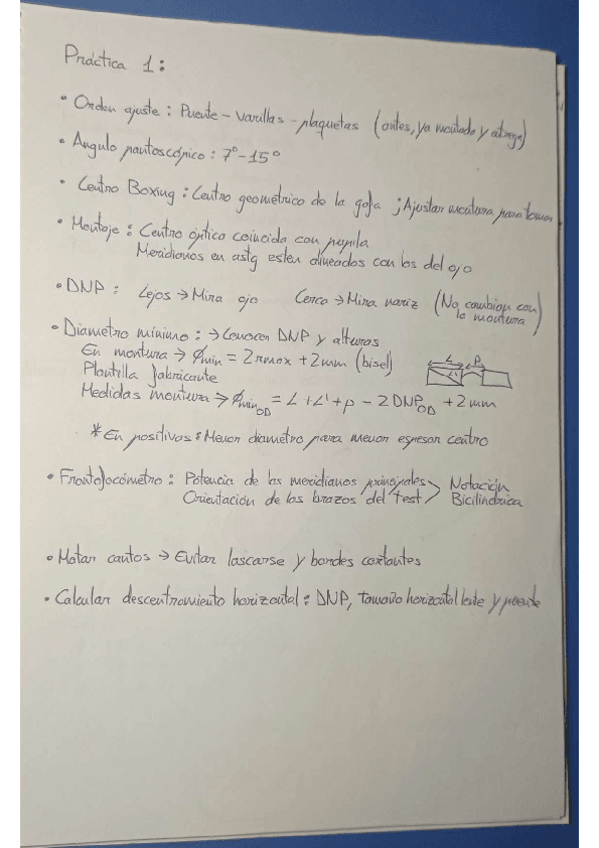 Práctica 1:
• Orden ajuste: Puente - Varillas - plaquetas (antes, ya montado y entrega)
• Angulo pantoscópico: 7° - 15°
• Centro Boxing: Centro geométrico de la gafa ; Ajustar montura para tomar
• Montaje: Centro óptico coincida con pupila
Meridianos en astg esten alineados con los del ojo
• DNP: Lejos → Mira ojo Cerca → Mira nariz (No cambian con
la montura)
• Diametro mínimo: → Conocer DNP y alturas
En montura → Ømin = 2rmax + 2mm (bisel)
L P
Plantilla fabricante
L'
Medidas montura → Ømin OD = L + L' + p - 2 DNP OD + 2mm
* En positivos: Menor diametro para menor espesor centro
• Frontofocómetro: Potencia de los meridianos principales > Notación
Orientación de los brazos del test Bicilíndrica
• Matar cantos → Evitar lascarse y bordes cortantes
• Calcular descentramiento horizontal: DNP, tamaño horizontal lente y puente